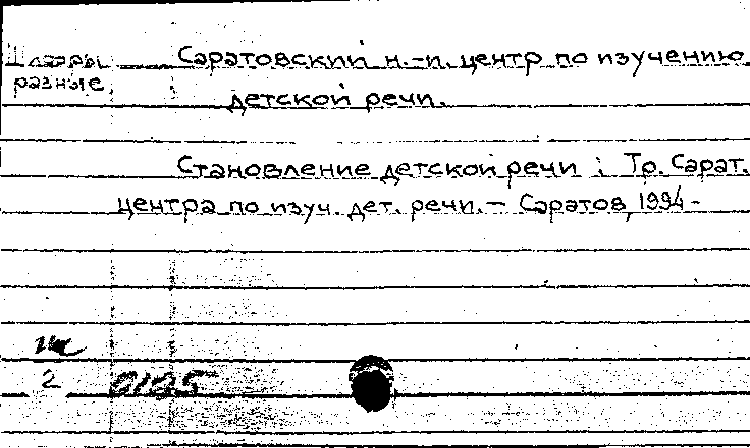 Шифры Саратовский н.-и. центр по изучению
разные, детской речи.
Становление детской речи : Тр. Сарат.
центра по изуч. дет. речи. – Саратов, 1994 -
2 0125